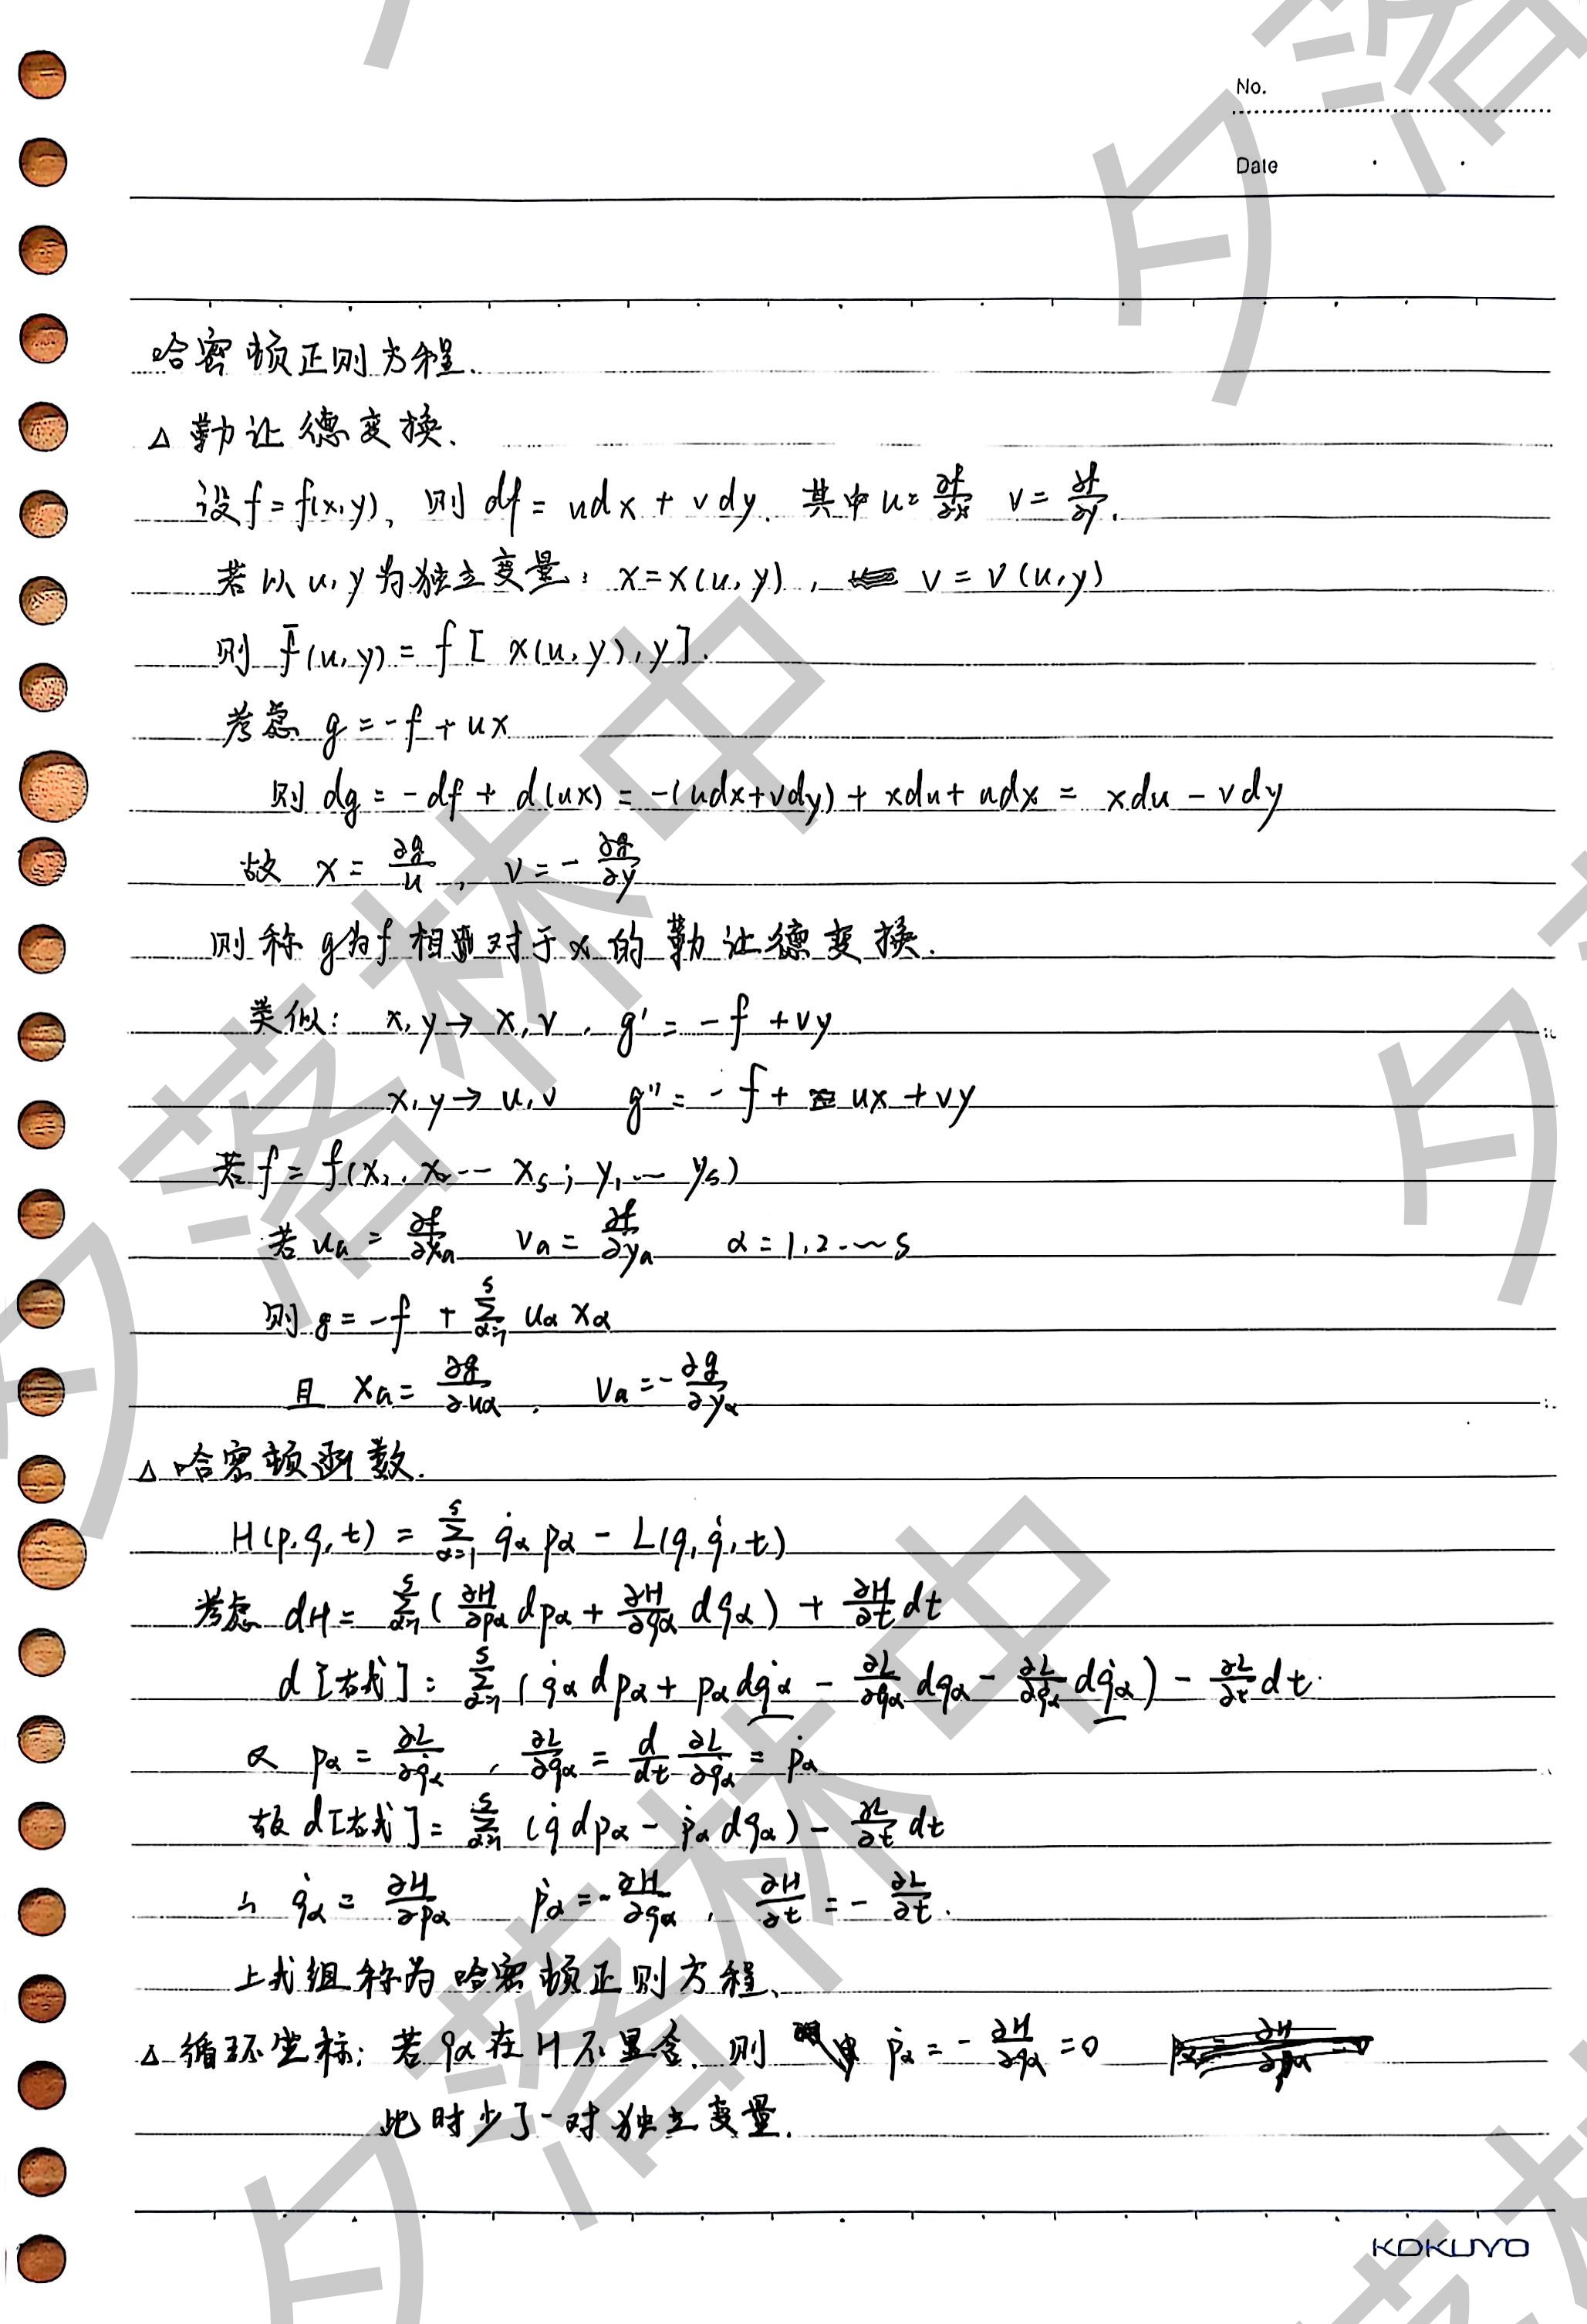 No.
Date
哈密顿正则方程.
△ 勒让德变换.
设 f = f(x,y), 则 df = udx + vdy. 其中 u = ∂f/∂x v = ∂f/∂y.
若以 u, y 为独立变量: x = x(u, y), v = v(u, y)
则 f̄(u, y) = f [ x(u, y), y ].
考虑 g = -f + ux
则 dg = -df + d(ux) = -(udx+vdy) + xdu + udx = xdu - vdy
故 x = ∂g/u , v = - ∂g/∂y
则称 g为f 相对于 x 的勒让德变换.
类似: x, y → x, v , g' = -f + vy
x, y → u, v g'' = -f + ux + vy
若 f = f(x₁, x₂ ... x_s; y₁ ... y_s)
若 u_α = ∂f/∂x_α v_α = ∂f/∂y_α α = 1, 2 ... s
则 g = -f + Σ_{α=1}^{s} u_α x_α
且 x_α = ∂g/∂u_α , v_α = - ∂g/∂y_α
△ 哈密顿函数.
H(p, q, t) = Σ_{α=1}^{s} q̇_α p_α - L(q, q̇, t)
考虑 dH = Σ_{α=1}^{s} ( ∂H/∂p_α dp_α + ∂H/∂q_α dq_α ) + ∂H/∂t dt
d [右式] = Σ_{α=1}^{s} ( q̇_α dp_α + p_α dq̇_α - ∂L/∂q_α dq_α - ∂L/∂q̇_α dq̇_α ) - ∂L/∂t dt.
又 p_α = ∂L/∂q̇_α , ∂L/∂q_α = d/dt ∂L/∂q̇_α = ṗ_α
故 d[右式] = Σ_{α=1}^{s} (q̇ dp_α - ṗ_α dq_α) - ∂L/∂t dt
∴ q̇_α = ∂H/∂p_α ṗ_α = - ∂H/∂q_α , ∂H/∂t = - ∂L/∂t .
上式组称为哈密顿正则方程.
△ 循环坐标: 若 q_α 在 H 不显含. 则 ṗ_α = - ∂H/∂q_α = 0
此时少了一对独立变量.
KOKUYO
夕落林中
夕落林中